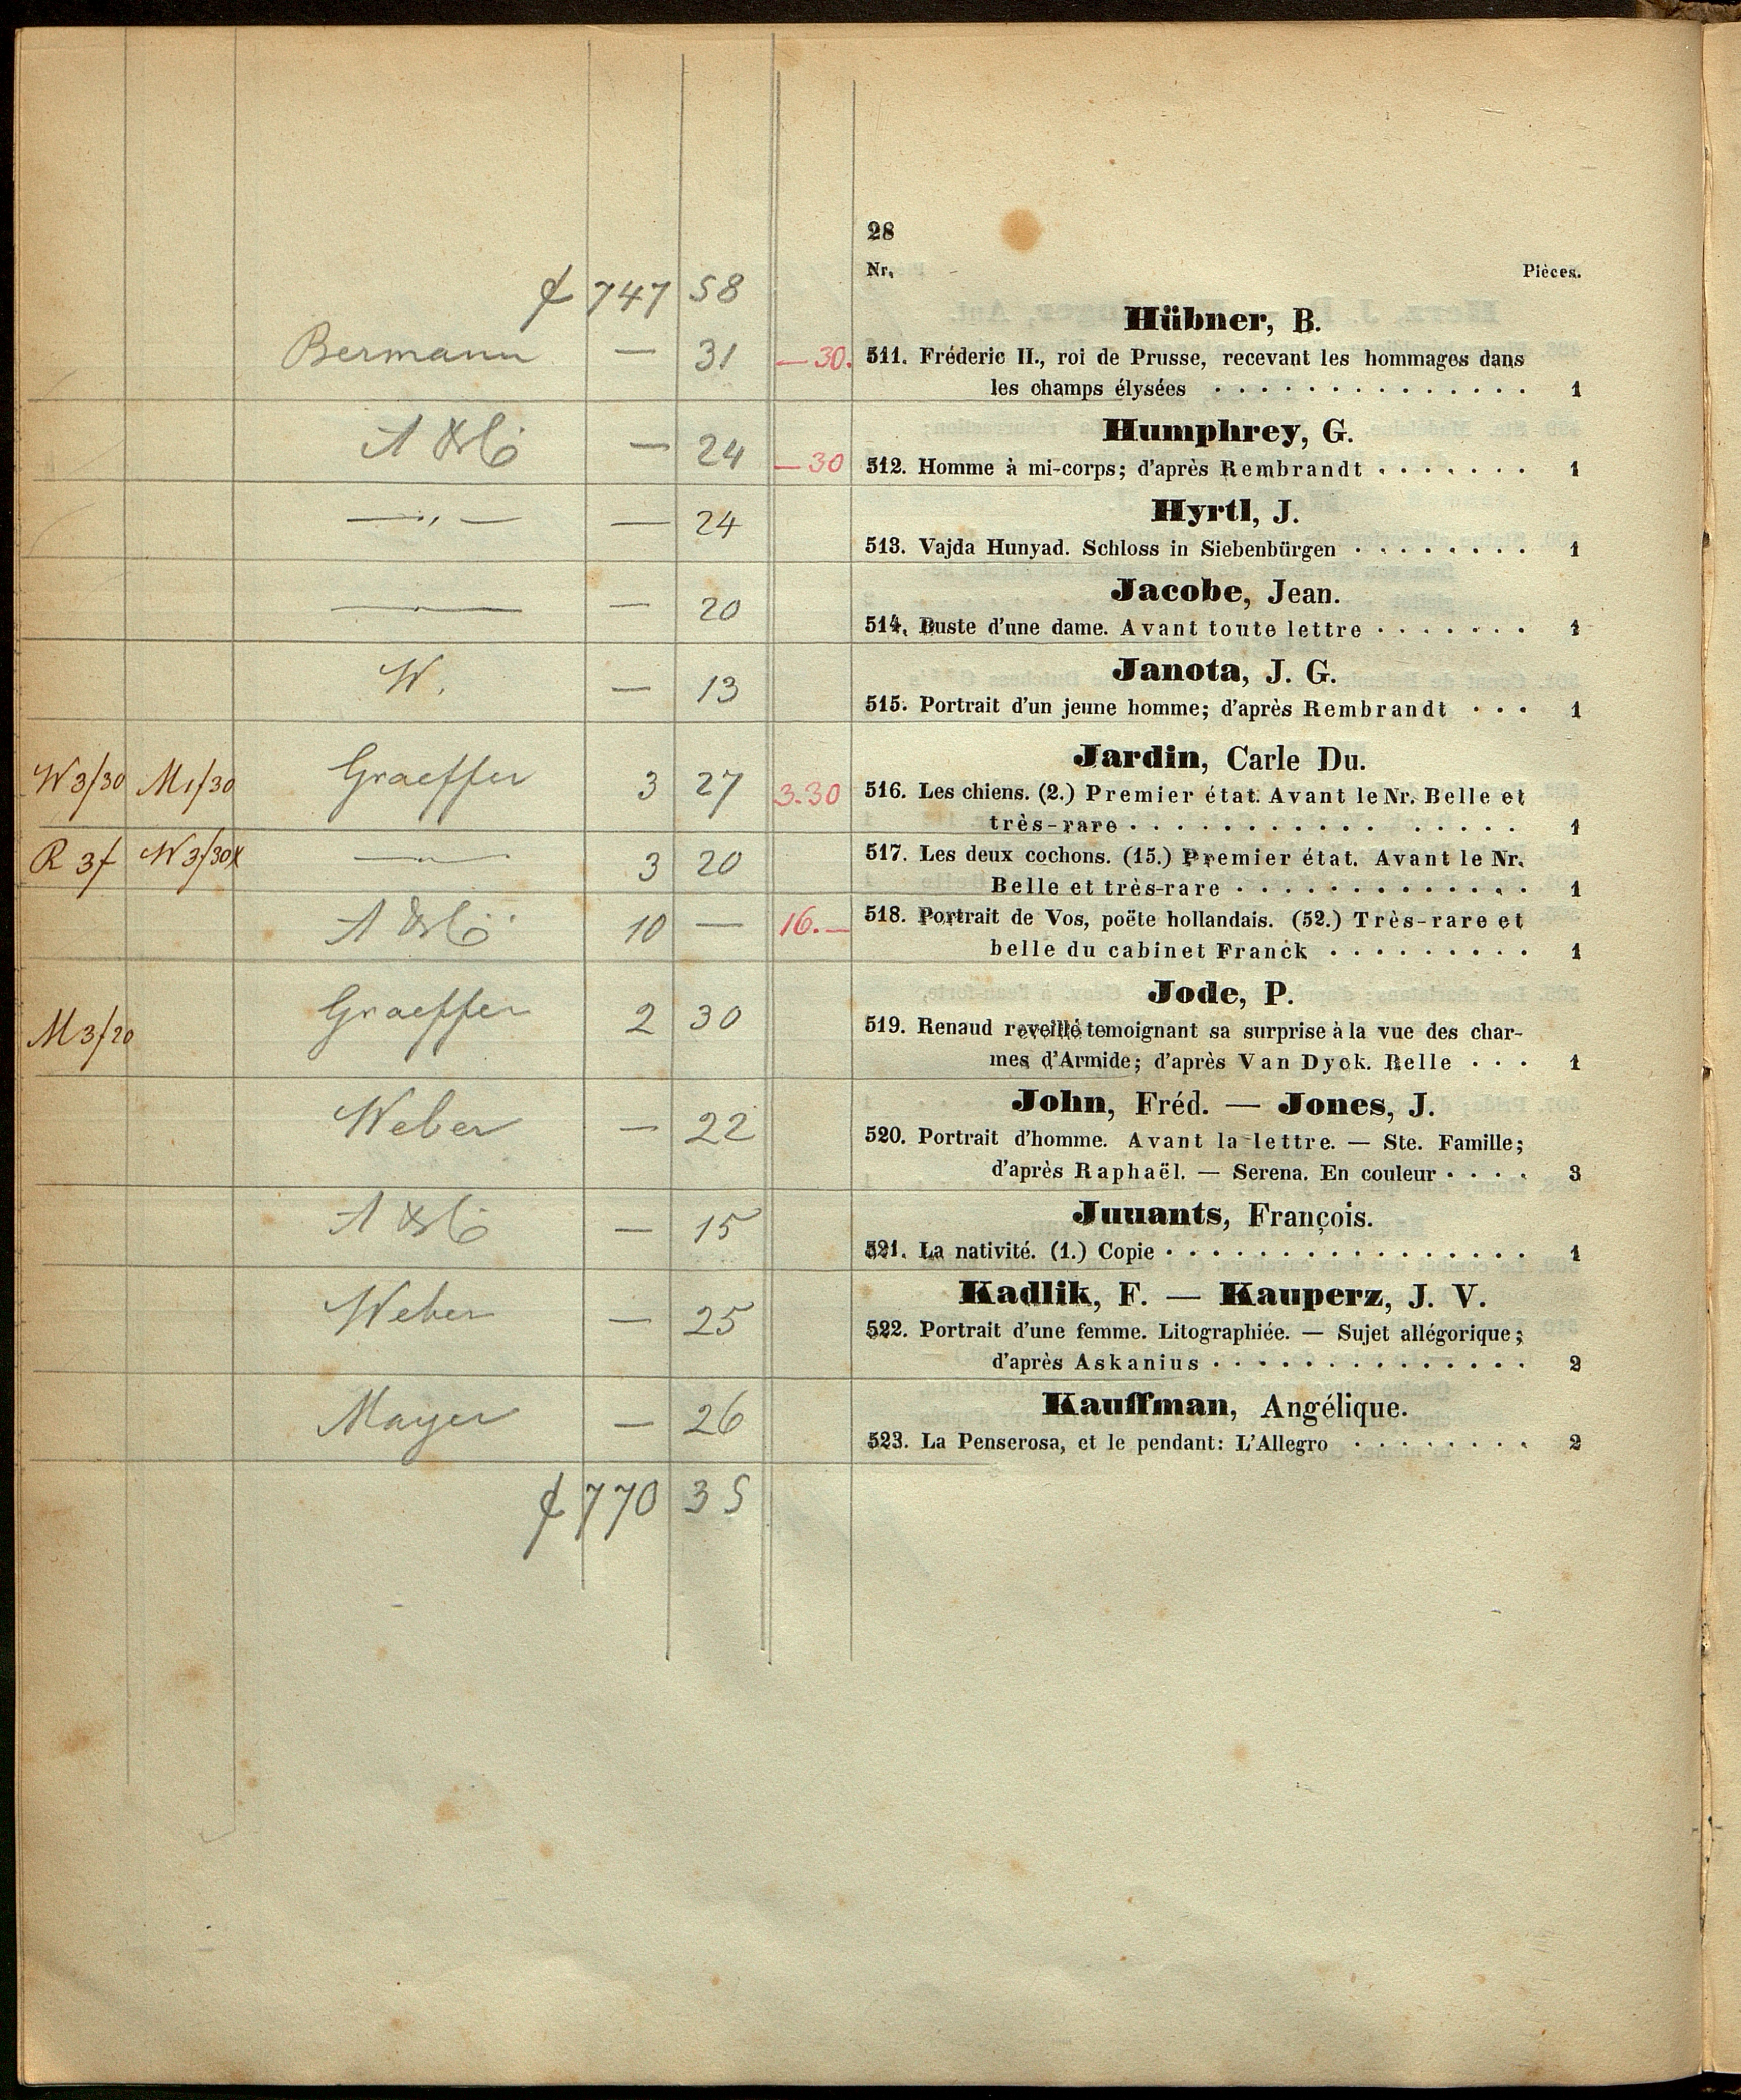 28
Nr. Pièces.
f 747 58
Hübner, B.
Bermann — 31 —30. 511. Fréderic II., roi de Prusse, recevant les hommages dans
les champs élysées . . . . . . . . . . . . . . 1
Humphrey, G.
A & Co — 24 —30 512. Homme à mi-corps; d'après Rembrandt . . . . . . . 1
Hyrtl, J.
—„— — 24 513. Vajda Hunyad. Schloss in Siebenbürgen . . . . . . . . 1
Jacobe, Jean.
—„— — 20 514. Buste d'une dame. Avant toute lettre . . . . . . . 1
Janota, J. G.
W. — 13 515. Portrait d'un jeune homme; d'après Rembrandt . . . 1
Jardin, Carle Du.
W 3/30 M1/30 Graeffer 3 27 3.30 516. Les chiens. (2.) Premier état. Avant le Nr. Belle et
très-rare . . . . . . . . . . . . . . . . . 1
R 3f W 3/30x —„— 3 20 517. Les deux cochons. (15.) Premier état. Avant le Nr.
Belle et très-rare . . . . . . . . . . . . . 1
A & Co 10 — 16.— 518. Portrait de Vos, poëte hollandais. (52.) Très-rare et
belle du cabinet Franck . . . . . . . . . 1
Jode, P.
M 3/20 Graeffer 2 30 519. Renaud reveillé temoignant sa surprise à la vue des char-
mes d'Armide; d'après Van Dyck. Belle . . . 1
John, Fréd. — Jones, J.
Weber — 22 520. Portrait d'homme. Avant la lettre. — Ste. Famille;
d'après Raphaël. — Serena. En couleur . . . . 3
Juuants, François.
A & Co — 15 521. La nativité. (1.) Copie . . . . . . . . . . . . . . . . 1
Kadlik, F. — Kauperz, J. V.
Weber — 25 522. Portrait d'une femme. Litographiée. — Sujet allégorique;
d'après Askanius . . . . . . . . . . . . . . 2
Kauffman, Angélique.
Mayer — 26 523. La Penserosa, et le pendant: L'Allegro . . . . . . . . 2
f 770 35